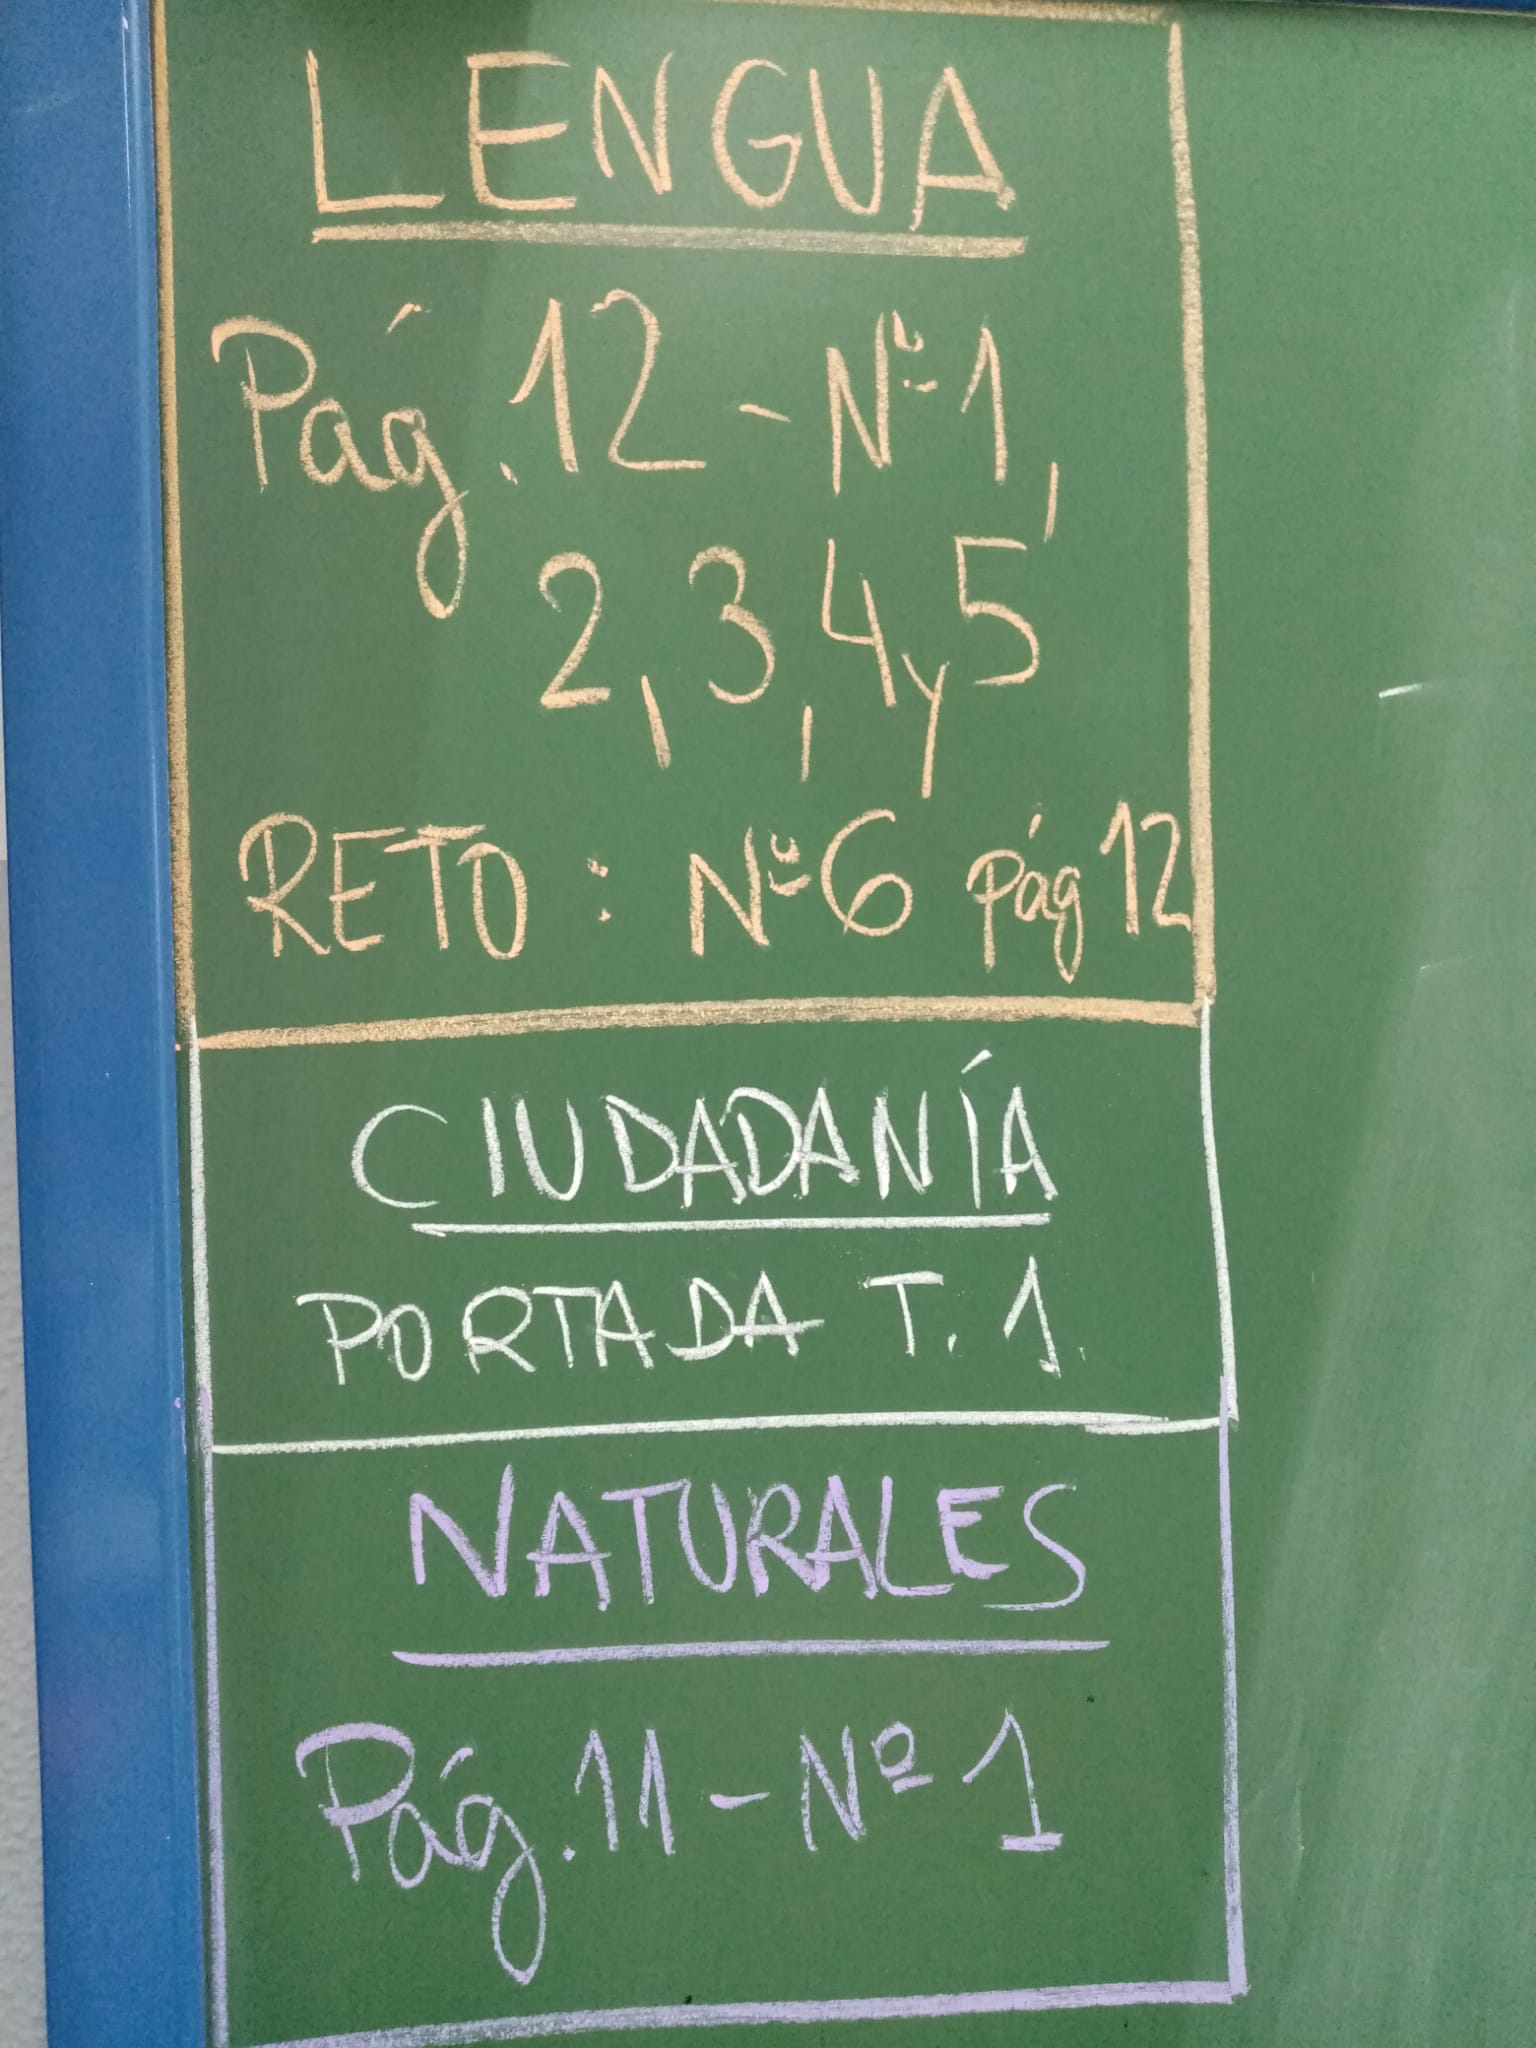 LENGUA
Pág. 12 - Nº 1,
2, 3, 4 y 5
RETO: Nº 6 pág 12
CIUDADANÍA
PORTADA T. 1.
NATURALES
Pág. 11 - Nº 1